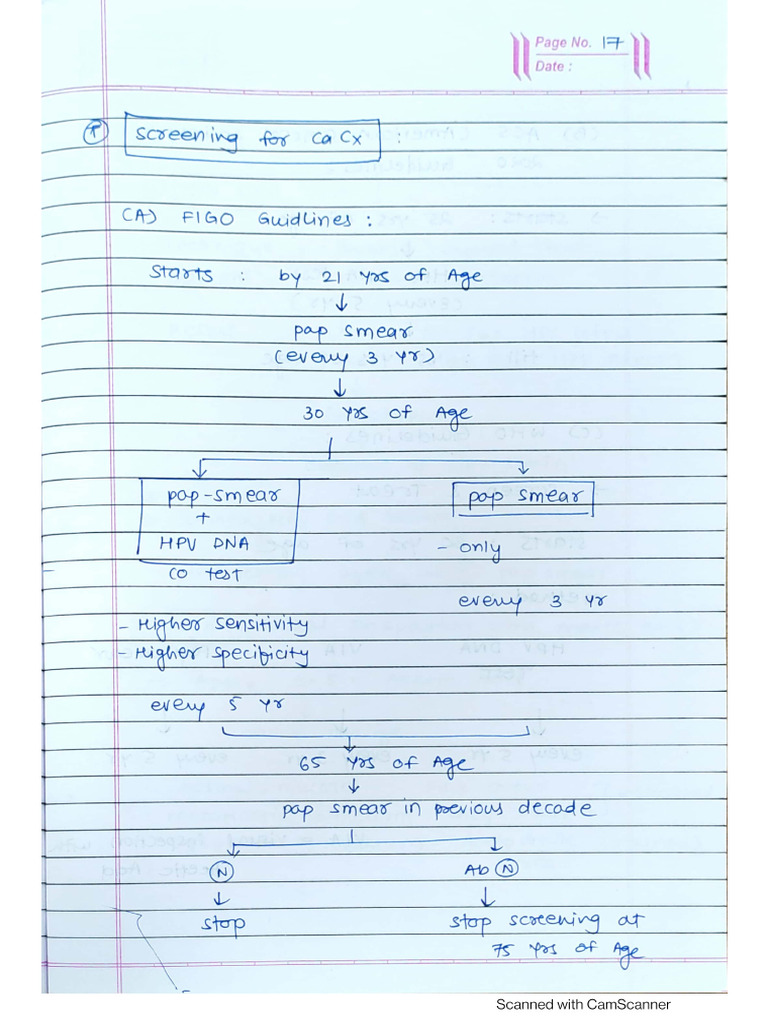 Page No. 17
Date :
(P) Screening for Ca Cx :
(A) FIGO Guidlines :
Starts : by 21 Yrs of Age
↓
pap smear
(every 3 Yr)
↓
30 Yrs of Age
pap-smear
+
HPV DNA
co test
pap smear
- only
every 3 Yr
- Higher sensitivity
- Higher specificity
every 5 Yr
65 Yrs of Age
↓
pap smear in previous decade
(N)
↓
stop
Ab (N)
↓
stop screening at
75 Yrs of Age
Scanned with CamScanner